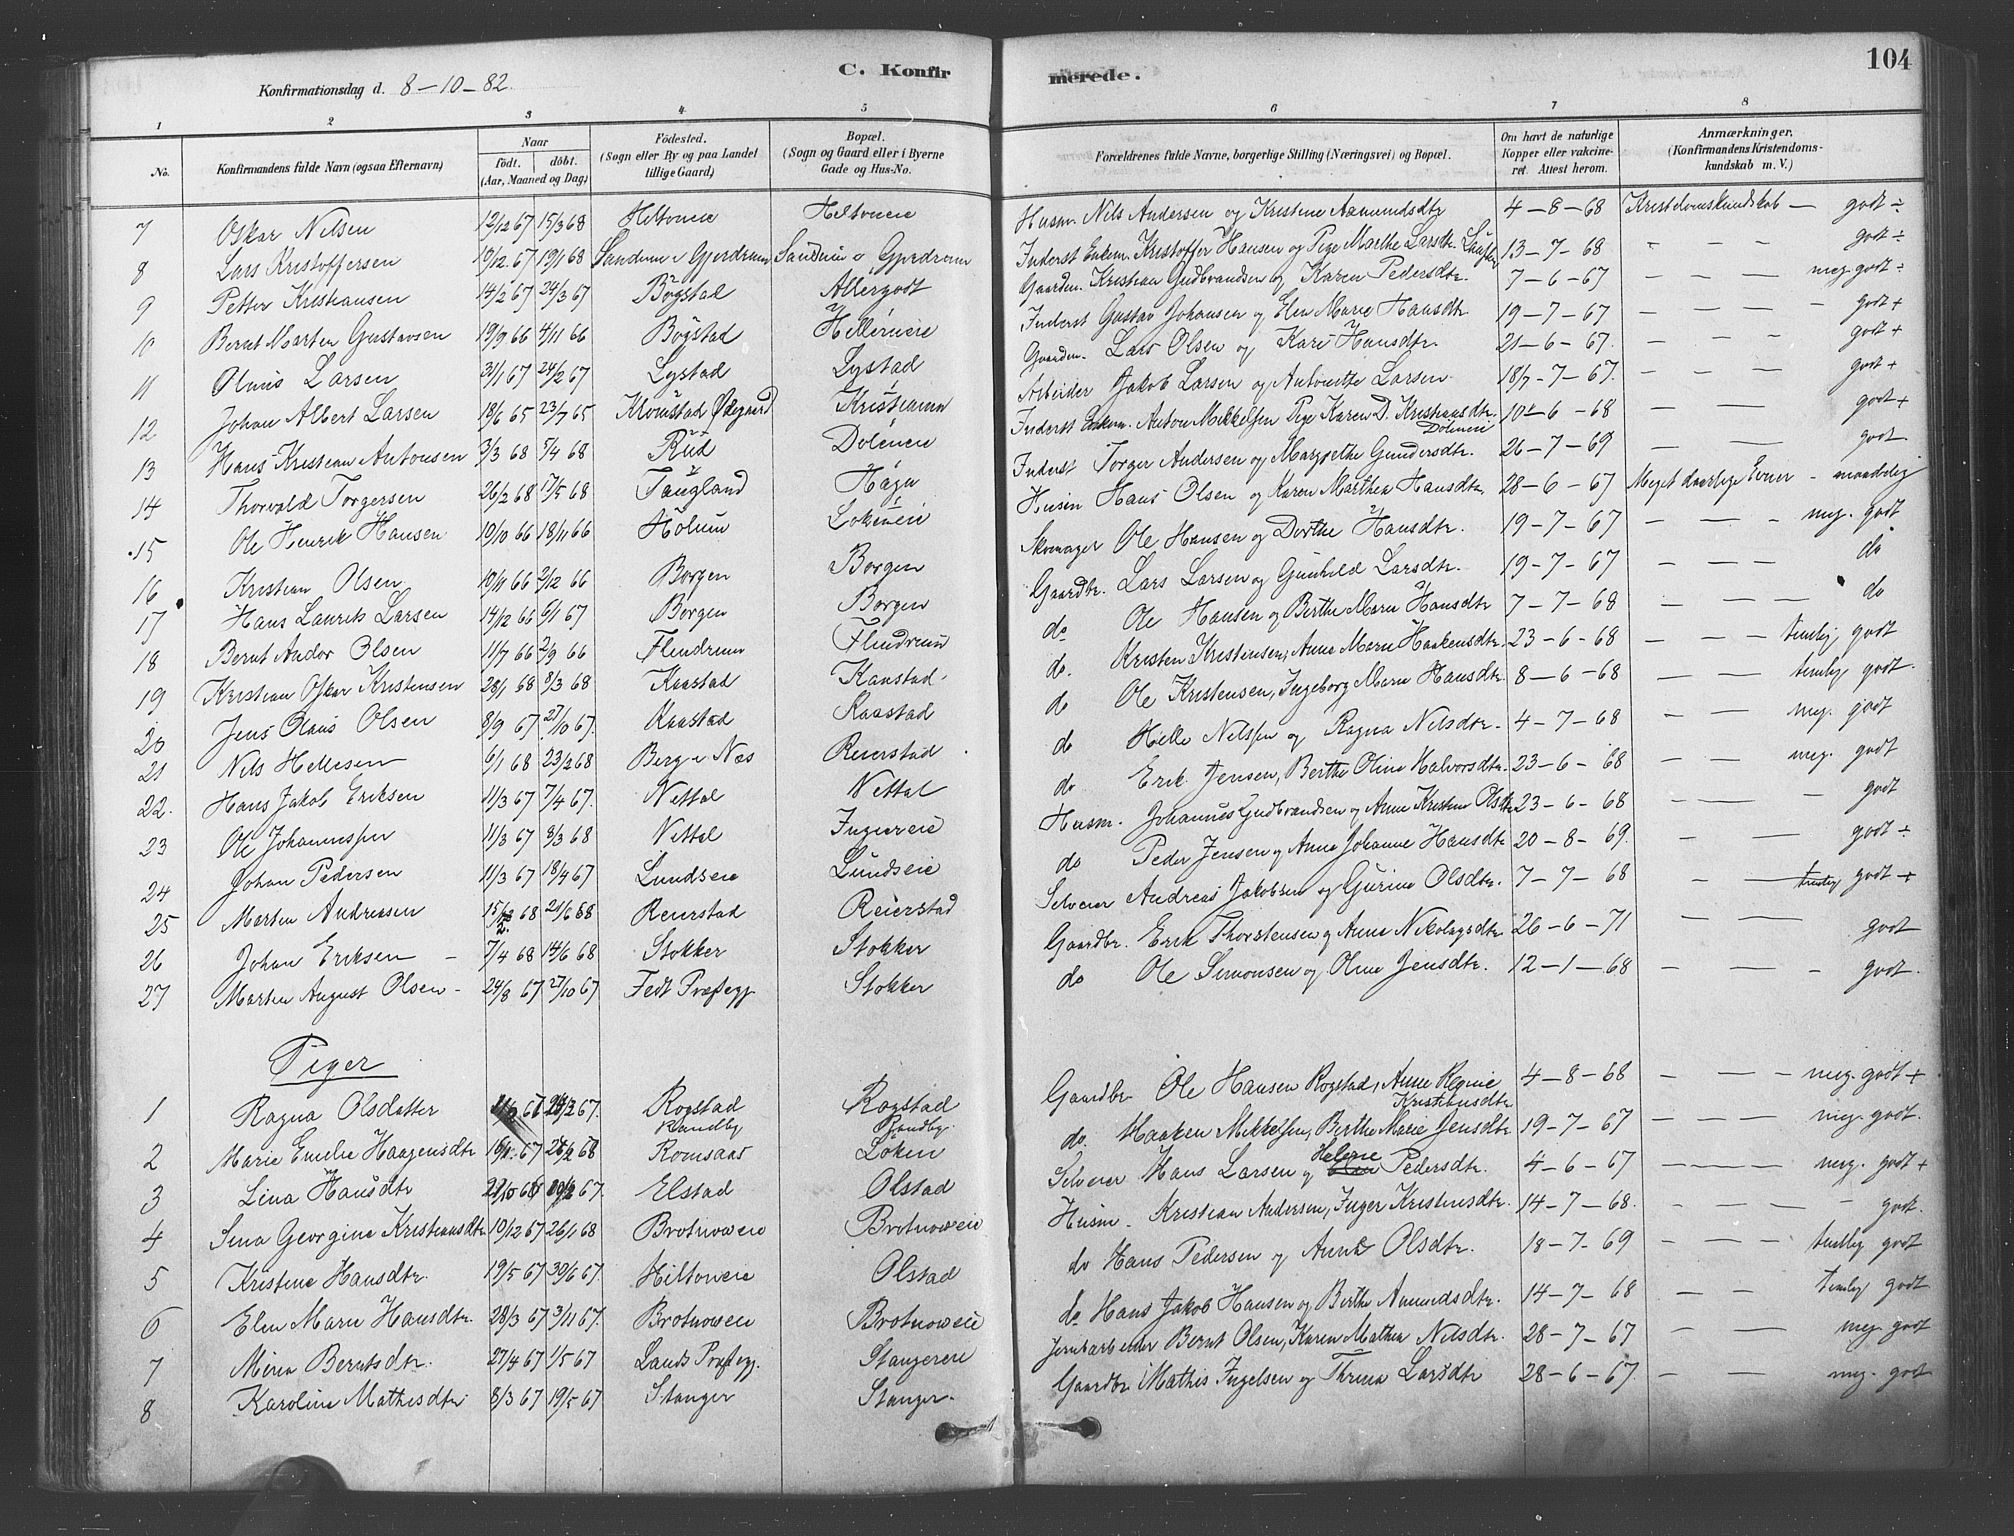 104
C. Konfir merede.
Konfirmationsdag d. 8-10-82.
1 2 3 4 5 6 7 8
No. Konfirmandens fulde Navn (ogsaa Efternavn) Naar födt. döbt. (Aar, Maaned og Dag) Födested. (Sogn eller By og paa Landet tillige Gaard) Bopæl. (Sogn og Gaard eller i Byerne Gade og Hus-No. Forældrenes fulde Navne, borgerlige Stilling (Næringsvei) og Bopæl. Om havt de naturlige Kopper eller vakcineret. Attest herom. Anmærkninger. (Konfirmandens Kristendomskundskab m. V.)
7 Oskar Nilsen 12/12 67 15/3 68 Heltoneie Heltoneie Husm. Nils Andersen og Kristine Aamundsdtr 4-8-68 Kristdomskundskab - godt ÷
8 Lars Kristoffersen 10/12 67 19/1 68 Sanderen i Gjerdrum i Gjerdrum Inderst Enkem. Kristoffer Hansen og Pige Marthe Larsdtr. 13-7-68 - - - godt ÷
9 Petter Kristiansen 14/2 67 24/3 67 Bögstad Allergodt Gaardm. Kristian Gudbrandsen og Karen Pedersdtr. 7-6-67 - - - meg. godt ÷
10 Bernt Martin Gustavsen 19/9 66 4/11 66 Bögstad Hellerneie Inderst Gustav Johansen og Elen Marie Hansdtr 19-7-67 - - - godt +
11 Olaus Larsen 31/1 67 24/2 67 Lystad Lystad Gaardm. Lars Olsen og Kari Hansdtr. 21-6-67. - - - godt +
12 Johan Albert Larsen 18/6 65 23/7 65 Ödegaard Kristiania Arbeider Jakob Larsen og Antonette Larsen. 18/7-7-67. - - - godt +
13 Hans Kristian Antonsen 3/3 68 5/4 68 Rud Döleneie Inderst Enkem. Anton Mikkelsen Pige Karen D. Kristiansdtr. Döleneie 10-6-68 - - godt +
14 Thorvald Torgersen 26/2 68 17/5 68 Taugland Haga Inderst Torger Andersen og Margrethe Gundersdtr. 26-7-69 - - godt
15 Ole Henrik Hansen 10/10 66 18/11 66 Holum Lokeneie Husm Hans Olsen og Karen Marthea Hansdtr 28-6-67 Meget daarlige Evner - maadelig
16 Kristian Olsen 10/11 66 2/12 66 Borgen Borgen Skomager Ole Hansen og Dorthe Hansdtr. 19-7-67 - - - meg. godt
17 Hans Laurits Larsen 14/12 66 6/1 67 Borgen Borgen Gaardbr. Lars Larsen og Gunhild Larsdtr. 19-7-67 - - - do
18 Bernt Andor Olsen 11/7 66 2/9 66 Flendrum Flendrum do Ole Hansen og Berthe Marie Hansdtr 7-7-68 - - - do
19 Kristian Oskar Kristensen 28/1 68 8/3 68 Kaastad Kaastad do. Kristen Kristensen, Anne Marie Haakensdtr. 23-6-68 - - - temlig godt
20 Jens Olaus Olsen 8/9 67 27/10 67. Kaastad Kaastad do Ole Kristensen, Ingeborg Marie Hansdtr 8-6-68 - - - temlig godt.
21 Nils Hellesen 6/1 68 23/2 68 Berg i Næs Reierstad do Helle Nilssen og Ragna Nilsdtr. 4-7-68 - - - meg. godt
22. Hans Jakob Eriksen 11/3 67 7/4 67. Nettal Nettal do Erik Jensen, Berthe Oline Halvorsdtr. 23-6-68 - - - meg. godt
23 Ole Johannssen 11/3 67 8/3 68 Nettal Ingiereie Husm. Johannes Gudbrandsen og Anne Kristine Olsdtr 23-6-68 - - - godt
24 Johan Pedersen 11/3 67 18/4 67 Lundseie Lundseie do Peder Jensen og Anne Johanne Hansdtr 20-8-69. - - - godt ÷
25 Morten Andreasen 15/2 68 21/6 68 Reierstad Reierstad Selveier Andreas Jakobsen og Gurine Olsdtr. 7-7-68 - - temlig godt +
26 Johan Eriksen - 7/4 68 14/6 68 Stokker Stokker Gaardbr. Erik Thorstensen og Anne Nikolaysdtr 26-6-71 - - - godt
27 Martin August Olsen - 24/8 67 27/10 67 Fedt Præstegj. Stokker do Ole Simonsen og Oline Jensdtr. 12-1-68 - - - godt.
Piger
1 Ragna Olsdatter 67 67. Rogstad Rogstad Gaardbr Ole Hansen Rogstad, Anne Regine Kristiansdtr 4-8-68 - - - meg. godt +
2 Marie Emilie Haagensdtr 67 68 Randby Romsaas Randby. Löken do. Haaken Mikkelsen, Berthe Marie Jensdtr 19-7-67 - - - meg. godt.
3 Lina Hansdtr 67. Elstad Olstad Selveier Hans Larsen og Helene Pedersdtr. 4-6-67 - - - meg. godt +
4 Sina Georgine Kristiansdtr 10/12 67 26/1 68 Brotnoweie Brotnoweie Husm. Kristian Andersen, Inger Kristensdtr. 14-7-68. - - - godt.
5 Kristine Hansdtr. 19/5 67 30/6 67. Hiltoneie Olstad do Hans Pedersen og Anne Olsdtr. 18-7-69 - - - temlig godt
6 Elen Marie Hansdtr. 28/3 67 3/11 67. Brotnoweie Brotnoweie do Hans Jakob Hansen og Berthe Amundsdtr. 14-7-68 - - - temlig godt
7 Mina Berntsdtr. 27/4 67 1/5 67 Lands Præstegj. Stangereie Jernbarbeider Bernt Olsen, Karen Mathea Nilsdtr. 28-7-67 - - - meg godt
8 Karoline Mathisdtr 8/3 67 19/5 67 Stanger Stanger. Gaardbr Mathis Ingelsen og Thrina Larsdtr 28-6-67. - - - meg. godt